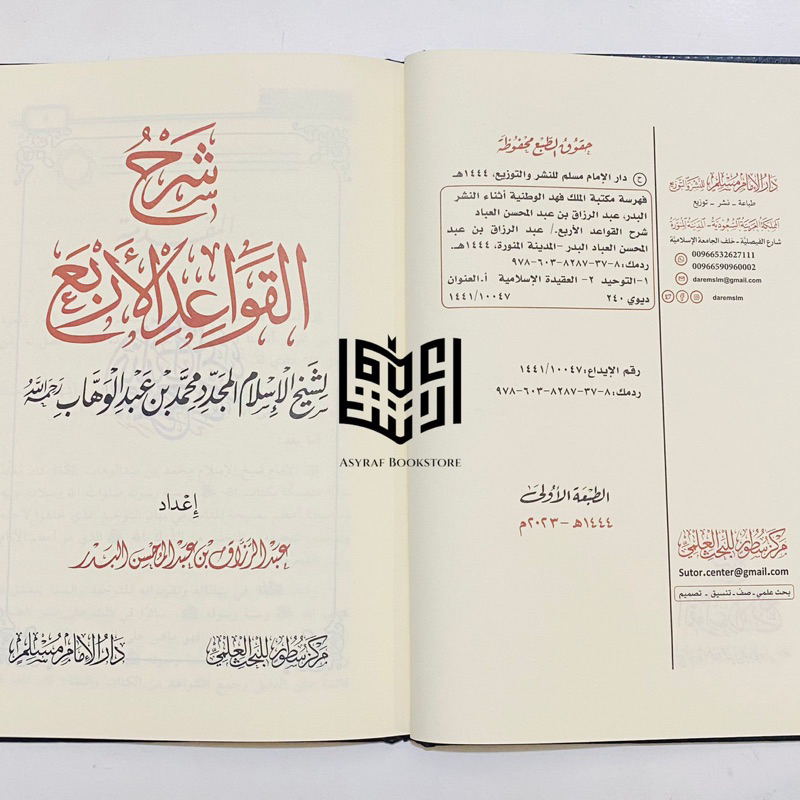 حقوق الطبع محفوظة
ح دار الإمام مسلم للنشر والتوزيع، ١٤٤٤هـ
فهرسة مكتبة الملك فهد الوطنية أثناء النشر
البدر، عبد الرزاق بن عبد المحسن العباد
شرح القواعد الأربع./ عبد الرزاق بن عبد
المحسن العباد البدر -المدينة المنورة، ١٤٤٤هـ.
ردمك: ٨-٣٧-٨٢٨٧-٦٠٣-٩٧٨
١-التوحيد ٢- العقيدة الإسلامية أ.العنوان
ديوي ٢٤٠ ١٤٤١/١٠٠٤٧
رقم الإيداع: ١٤٤١/١٠٠٤٧
ردمك: ٨-٣٧-٨٢٨٧-٦٠٣-٩٧٨
الطبعة الأولى
١٤٤٤هـ -٢٠٢٣م
دار الإمام مسلم للنشر والتوزيع
طباعة - نشر - توزيع
المملكة العربية السعودية - المدينة المنورة
شارع الفيصلية - خلف الجامعة الإسلامية
00966532627111
00966590960002
daremslm@gmail.com
daremslm
مركز سطور للبحث العلمي
Sutor.center@gmail.com
بحث علمي - صف - تنسيق - تصميم
شرح
القواعد الأربع
لشيخ الإسلام المجدد محمد بن عبد الوهاب رحمه الله
إعداد
عبد الرزاق بن عبد المحسن البدر
مركز سطور للبحث العلمي
دار الإمام مسلم
ASYRAF BOOKSTORE